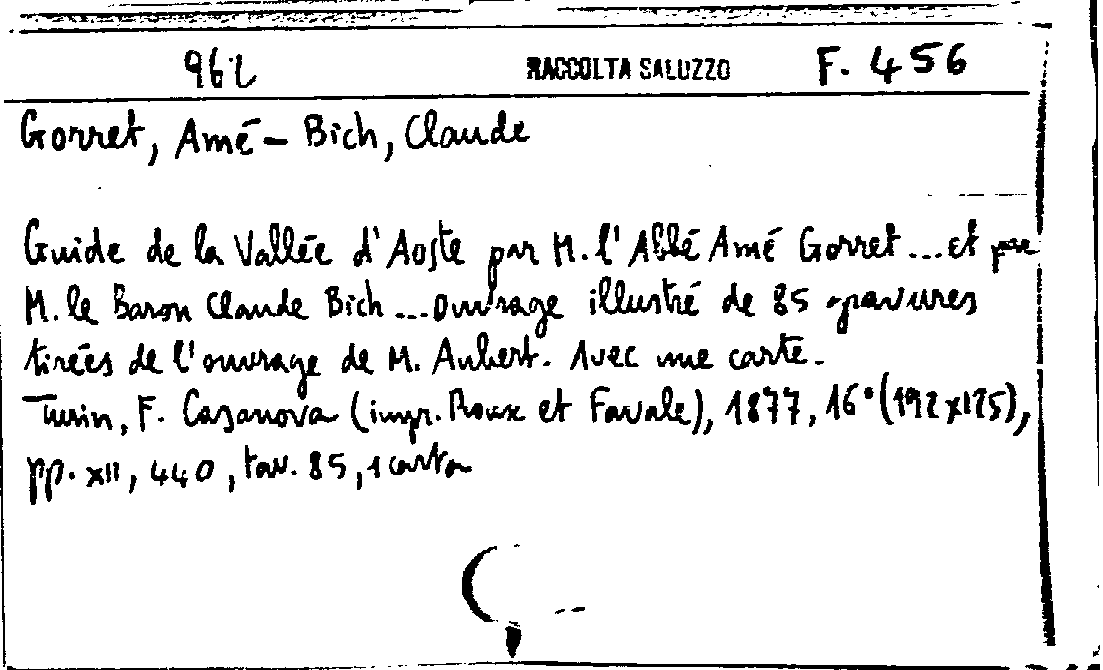 962 RACCOLTA SALUZZO F. 456
Gorret, Amé - Bich, Claude
Guide de la Vallée d'Aoste par M. l'Abbé Amé Gorret ... et par
M. le Baron Claude Bich ... ouvrage illustré de 85 gravures
tirées de l'ouvrage de M. Aubert. Avec une carte.
Turin, F. Casanova (impr. Roux et Favale), 1877, 16° (192x125),
pp. XII, 440, tav. 85, 1 carta